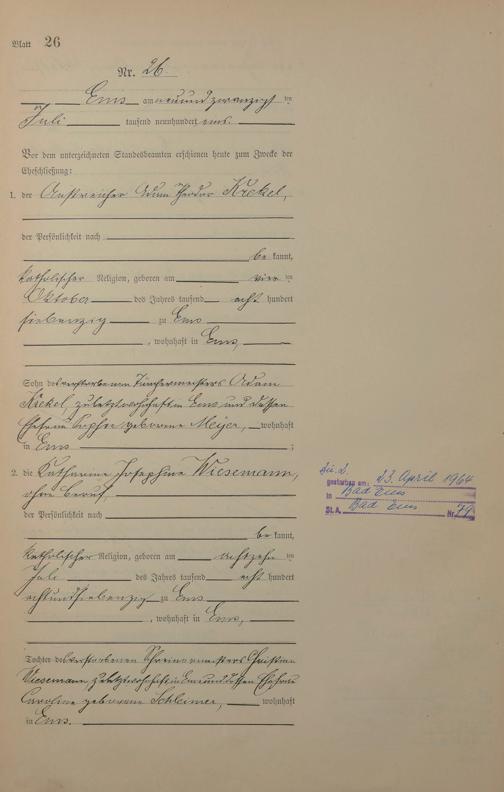 Blatt 26
Nr. 26
Ems am neunundzwanzigsten
Juli tausend neunhundert eins.
Vor dem unterzeichneten Standesbeamten erschienen heute zum Zwecke der
Eheschließung:
1. der Anstreicher Adam Theodor Krekel,
der Persönlichkeit nach
be kannt,
katholischer Religion, geboren am vier ten
Oktober des Jahres tausend acht hundert
siebenzig zu Ems
, wohnhaft in Ems,
Sohn des verstorbenen Tünchermeisters Adam
Krekel, zuletzt wohnhaft in Ems und dessen
Ehefrau Sophie geborene Meyer, wohnhaft
in Ems ;
2. die Katharina Josephine Wiesemann,
ohne Beruf
der Persönlichkeit nach
be kannt,
katholischer Religion, geboren am achtzehn ten
Juli des Jahres tausend acht hundert
achtundsiebenzig zu Ems
, wohnhaft in Ems,
Tochter des verstorbenen Schreinermeisters Christian
Wiesemann, zuletzt wohnhaft in Ems und dessen Ehefrau
Caroline geborene Schleimer, wohnhaft
in Ems.
gestorben am: 23. April 1964
in Bad Ems
St.A. Bad Ems Nr. 79